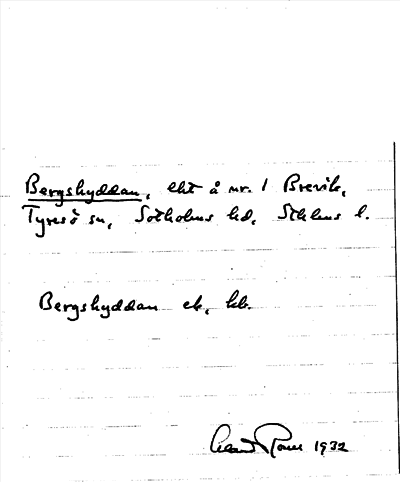 Bergshyddan, lht å nr. 1 Brevik,
Tyresö sn, Sotholms hd, Sthlms l.
Bergshyddan ek, kb.
1932